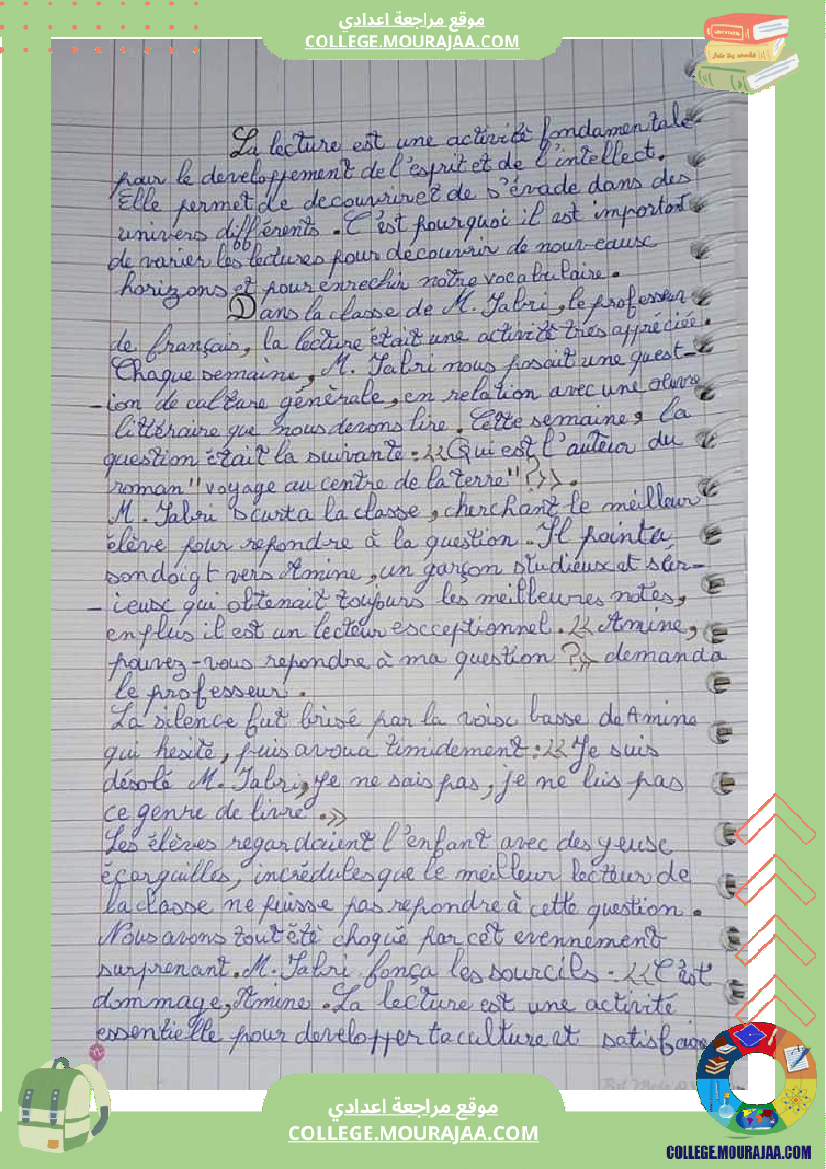 موقع مراجعة اعدادي
COLLEGE.MOURAJAA.COM
La lecture est une activité fondamentale
pour le developpement de l'esprit et de l'intellect.
Elle permet de decouvrir et de s'évade dans des
univers différents. C'est pourquoi il est important
de varier les lectures pour découvrir de nouveaux
horizons et pour enrechir notre vocabulaire.
Dans la classe de M. Jabri, le professeur
de français, la lecture était une activité trés appréciée.
Chaque semaine, M. Jabri nous posait une quest-
-ion de culture générale, en relation avec une œuvre
littéraire que nous devons lire. Cette semaine, la
question était la suivante : << Qui est l'auteur du
roman "voyage au centre de la terre" ? >>.
M. Jabri scurta la classe, cherchant le meilleur
élève pour repondre à la question. Il pointa
son doigt vers Amine, un garçon studieux et sér-
-ieux qui obtenait toujours les meilleures notes,
en plus il est un lecteur exceptionnel. << Amine,
pouvez-vous repondre à ma question ?>> demanda
le professeur.
La silence fut brisé par la voix basse de Amine
qui hesité, puis avoua timidement : << Je suis
désolé M. Jabri, je ne sais pas, je ne lis pas
ce genre de livre. >>
Les élèves regardaient l'enfant avec des yeux
écarquillés, incrédules que le meilleur lecteur de
la classe ne puisse pas repondre à cette question.
Nous avons tout été choqué par cet evennement
surprenant. M. Jabri fonça les sourcils. << C'est
dommage, Amine. La lecture est une activité
essentielle pour developper ta culture et satisfaire
موقع مراجعة اعدادي
COLLEGE.MOURAJAA.COM
COLLEGE.MOURAJAA.COM